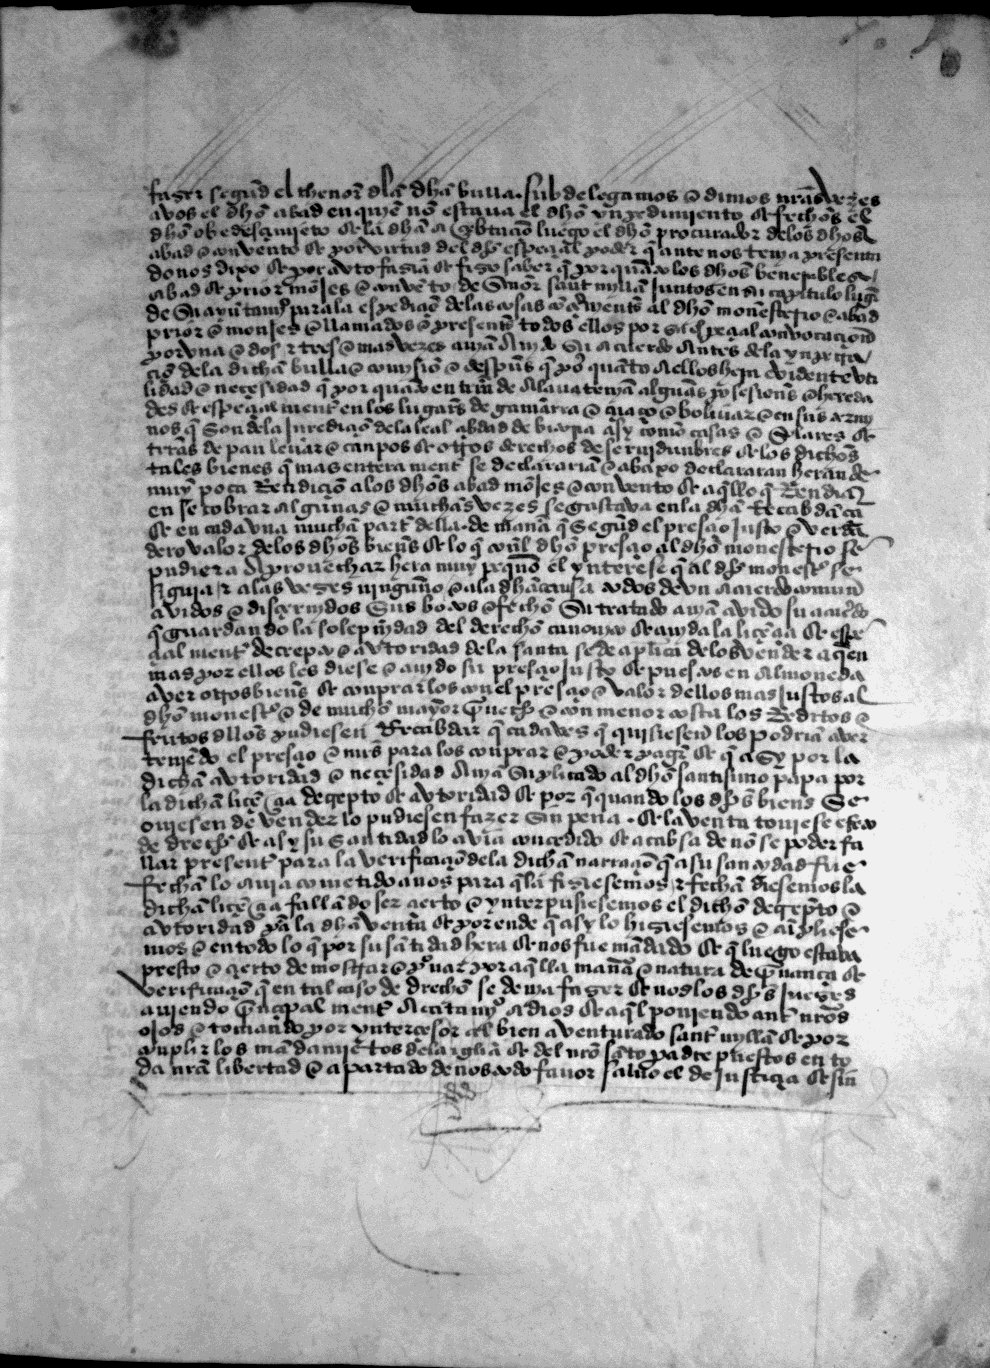 faser segūd el thenor̄ dla dhā bulla. subdelegamos e dimos nr̄as vezes
avos el dhō abad en quiē nō estaua el dhō ynpedimiento & fechōs el
dhō obedesçimiēto & la dhā açebtaciō luego el dhō procurador delos dhos
abad e convēto & por virtud del dhō espeçial poder q̄ ante nos tenja presenta
do nos dixo & por avto fasia & fiso saber q̄ por quāto los dhos benerables
abad & prior mōjes e convēto de Señor sant myllā juntos en su capitulo lugar
de su ayūtamjº para la espediçiō delas cosas cōçernientes al dhō monesterio e abad
prior e monjes e llamados e presentes todos ellos por su espeçial convocacion
por vna e dos e tres e mas vezes avia avido su acuerdo antes dela ynpetra
çiō dela dicha bulla e comisiō e despues q̄ por quāto a ellos hera evidente vti
lidad e neçesidad q̄ por quāto en trr̄a de alaua tenjā algunas posesiones e hereda
des & espeçial mente en los lugares de gamarra e çiaço e boliuar e en sus termj
nos q̄ son dela juridiçiō dela leal çibdad de bitoria asy como casas e solares &
trr̄as de pan leuar e canpos & otros derechos de seruidunbres & los dichos
tales bienes q̄ mas entera mente se declararian e abaxo declararan heran de
muy poca rendiçiō alos dhos abad mōjes e convento & aq̄llo q̄ rendian
en se cobrar algunas e muchas vezes se gastava en la dhā recabdāça
& en cada vna mucha parte della. de manera q̄ segūd el presçio justo e verda
dero valor delos dhos bienes & lo q̄ conl dhō presçio al dhō monesterio se
pudiera aprovechar hera muy peq̄no el ynterese q̄ al dhō monestº se
seguia e alas vezes ninguno e ala dhā causa todos de vn acuerdo comun
avidos e disçernidos sus botos e fecho su tratado avia avido su acuerdo
q̄ guardando la solepnydad del derecho canonico & avida la liçēçia & espe
çial mente decrepto e avtoridad dela santa sede aplica delos vender a quien
mas por ellos les diese e avido su presçio justo & puestos en almoneda
aver otros bienes & conprarlos con el presçio e valor dellos mas justos al
dhō monestº e de mucho mayor prouechº e con menor costa los reditos e
frutos dllos pudiesen recabdar q̄ cada ves q̄ quisiesen los podrian aver
teniēdo el presçio e mrs para los conprar e poder pagar & q̄ asy por la
dicha avtoridad e neçesidad avia suplicado al dhō santisimo papa por
la dicha liçēçia decrepto & avtoridad & por q̄ quando los dhos bienes se
oviesen de vender lo pudiesen fazer syn pena. & la venta toviese efecto
de derechº & asy su santidad lo avia conçedido & a cabsa de nō se poder fa
llar presente para la verificaçiō dela dicha narraçiō q̄ a su santidad fue
fecha lo avia cometido a nos para q̄ la fisiesemos e fecha diesemos la
dicha liçēçia fallādo ser çierto e ynterpusiesemos el dicho decrepto e
avtoridad pa la dhā venta & por ende q̄ asy lo hisiesemos e cūpliese
mos e en todo lo q̄ por su sātidad hera & nos fue mādado & q̄ luego estaba
presto e çierto de mostrar e prouar por aq̄lla manera e natura de prouança &
verificaçiō q̄ en tal caso de derecho se devia faser & nos los dhos jueses
aviendo prinçipal mente acatamjº a dios & aq̄l poniendo ante nros
ojos e tomando por yntercesor al bien aventurado sant myllā & por
cuplir los mādamiētos dela iglia & del nro sāto padre puestos en to
da nra libertad e apartado de nos todo favor saluo el de justiçia & sin